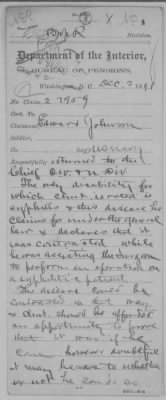 Division.
Department of the Interior,
BUREAU OF PENSIONS,
Washington, D. C., Dec. 2, 189
No. Claim, 27959
Cert. No.
Claimant, Edward Johnson
Soldier,
Respectfully returned to the
Chief
The only disability for
which clmt. is rated is
syphilis & this disease he
claims for under the general
law & declares that it
was contracted while
he was assisting the surgeon
to perform an operation on
a syphilitic patient.
The disease could be
contracted in that way
& clmt. should be afforded
an opportunity to prove
that it was if he
can however doubtful
it may be as to whether
or not he can do so